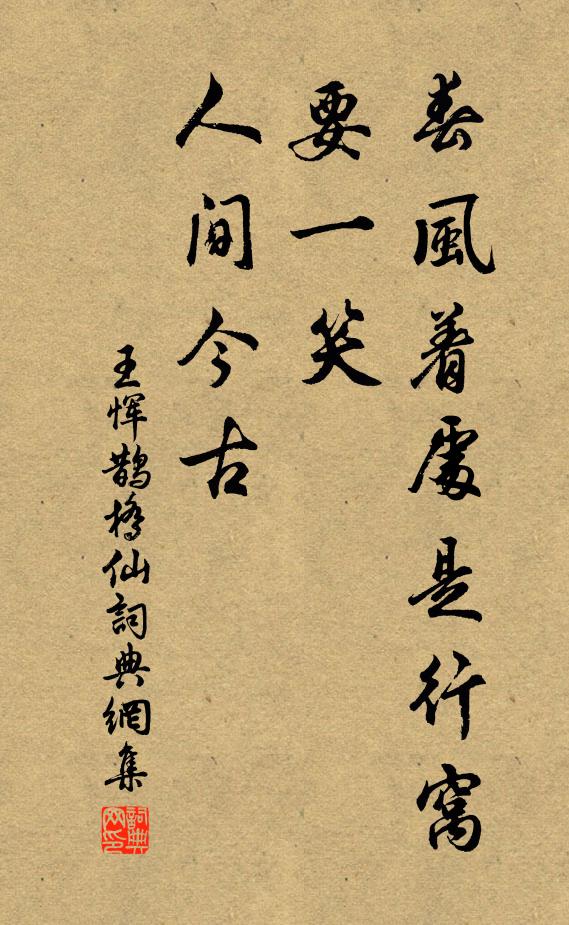 春風着處是行窩
要一笑
人間今古
王恽鵲橋仙詞典網集
詞典網印